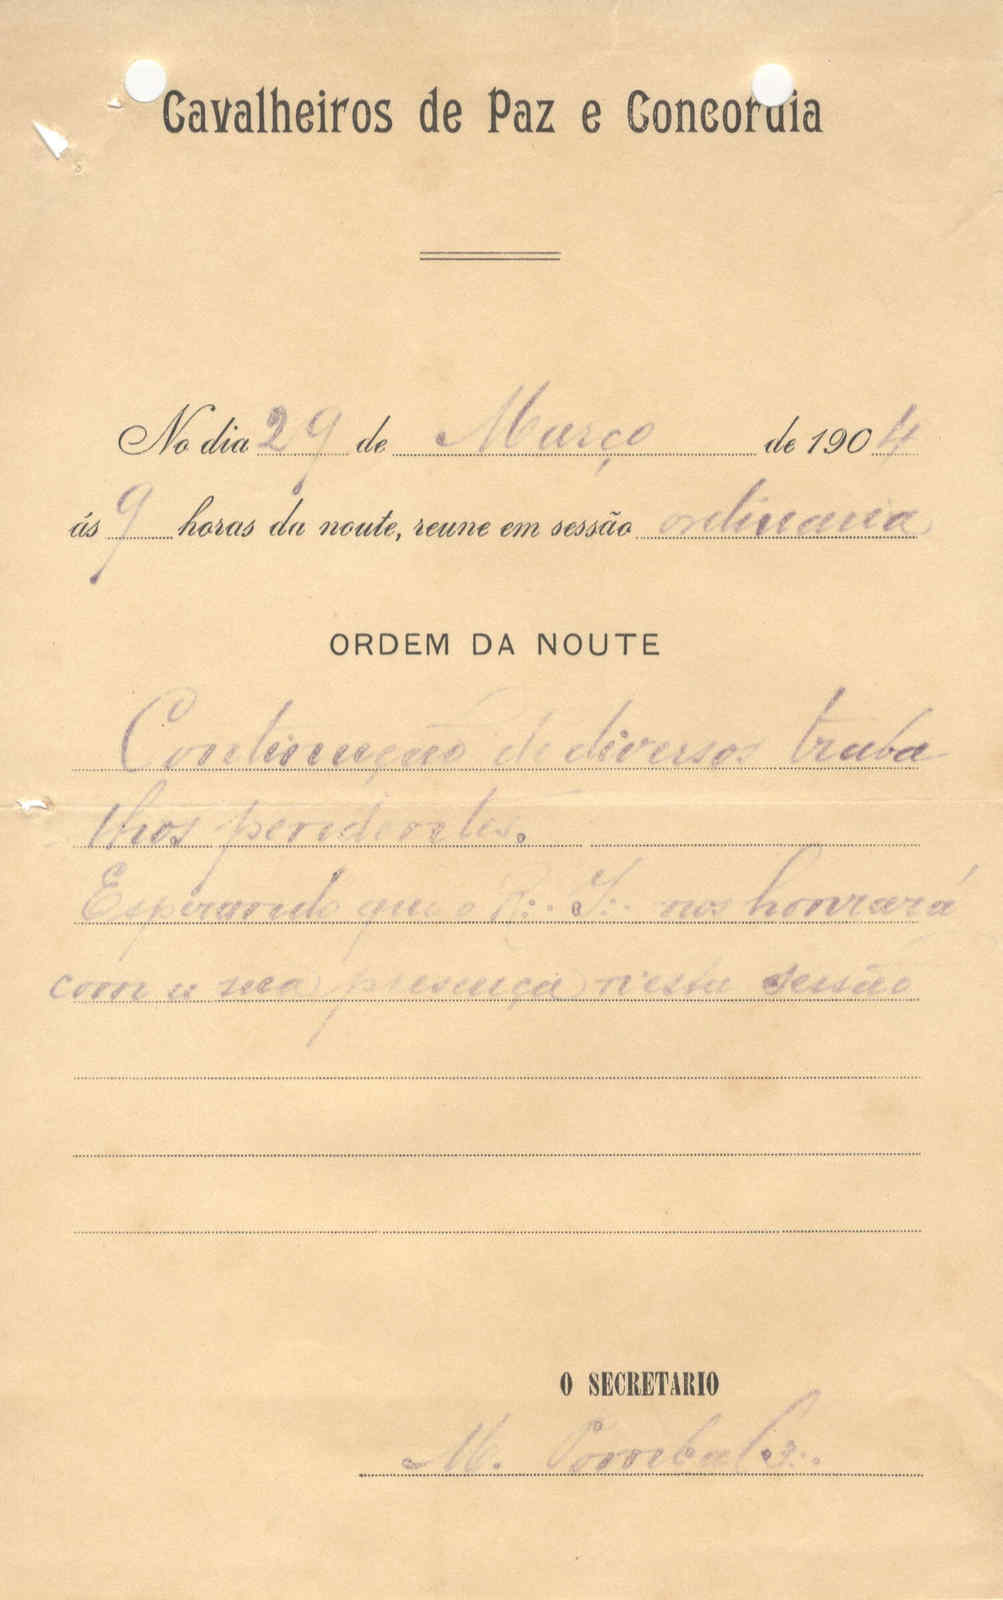 Cavalheiros de Paz e Concordia
No dia 29 de Março de 1904
ás 9 horas da noute, reune em sessão ordinaria
ORDEM DA NOUTE
Continuação de diversos traba
lhos pendentes.
Esperando que o R∴ I∴ nos honrará
com a sua presença n'esta sessão
O SECRETARIO
M. Pombal